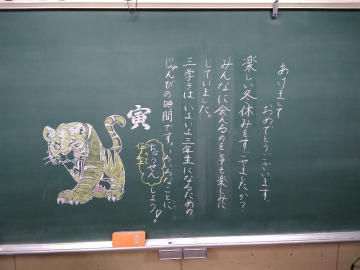 あけまして
おめでとうございます。
楽しい冬休みをすごせましたか？
みんなに会えるのをとても楽しみに
していました。
三学きは、いよいよ三年生になるための
じゅんびの時間です。いろいろなことに、
ちょうせんしよう！
寅